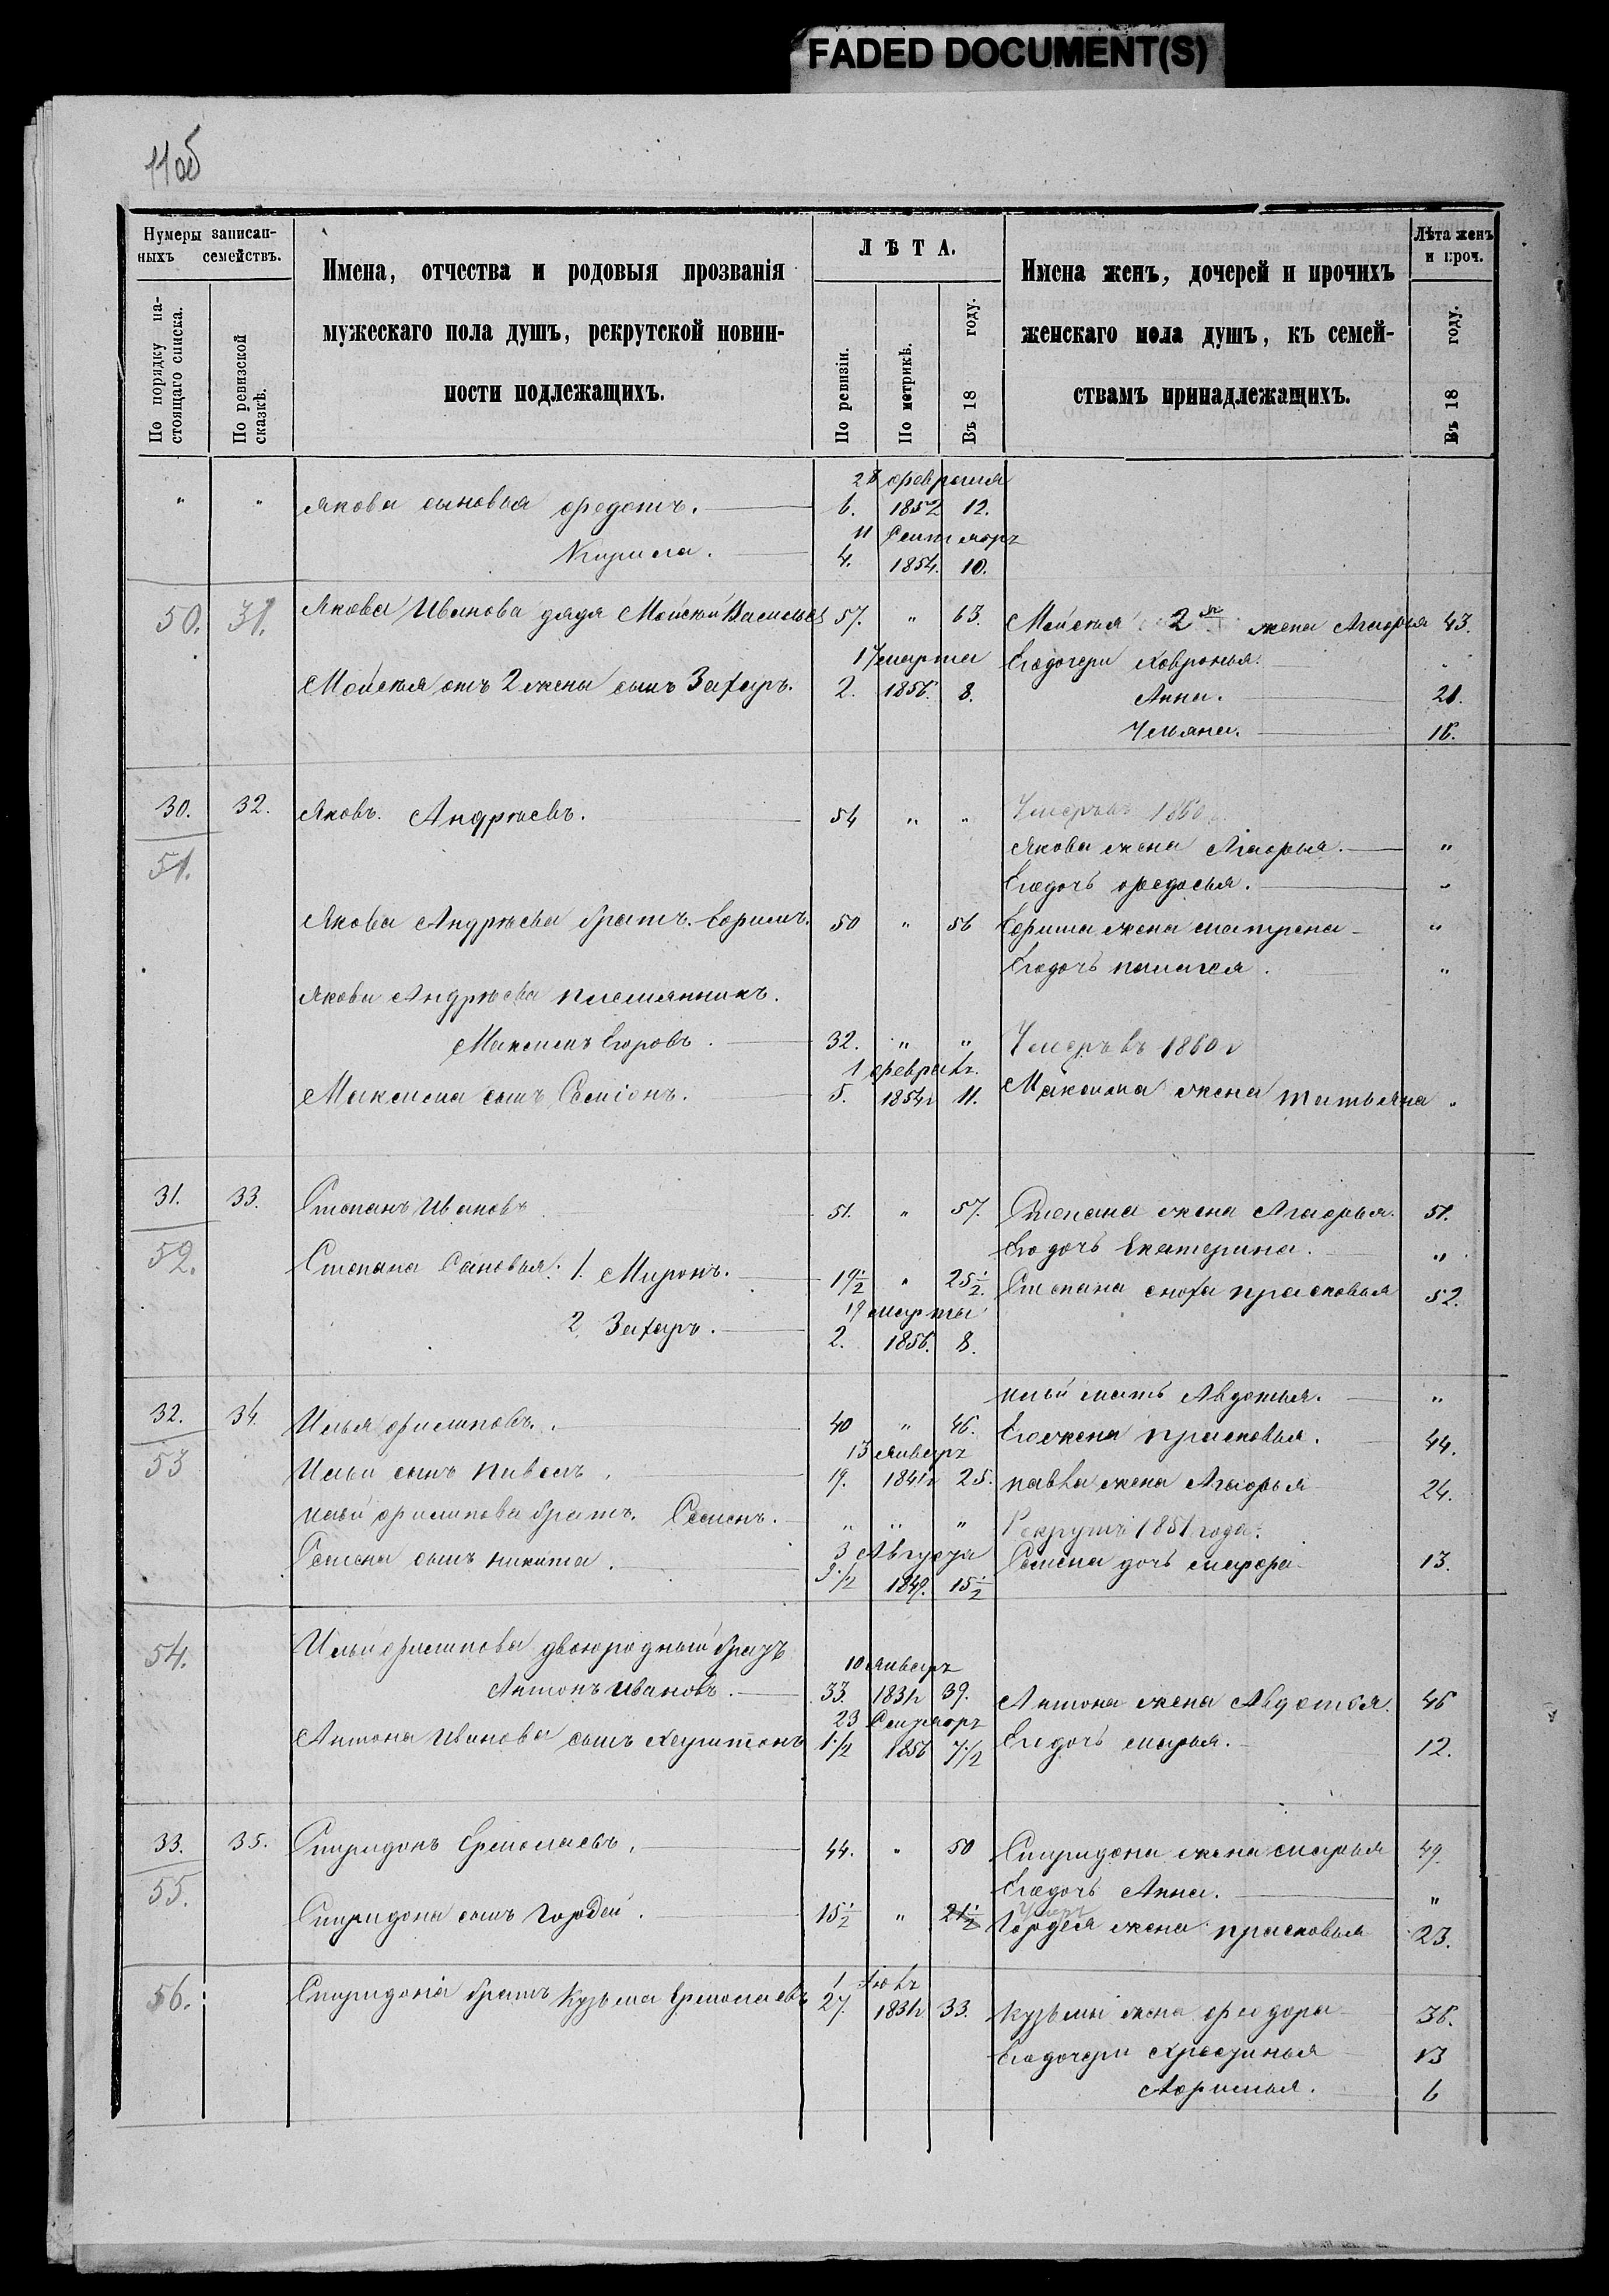 FADED DOCUMENT(S)
11об
Нумеры записан-
ныхъ семействъ.
По порядку на-
стоящаго списка.
По ревизской
сказкѣ.
Имена, отчества и родовыя прозванія
мужескаго пола душъ, рекрутской повин-
ности подлежащихъ.
ЛѢТА.
По ревизіи.
По метрикѣ.
Въ 18 году.
Имена женъ, дочерей и прочихъ
женскаго пола душъ, къ семей-
ствамъ принадлежащихъ.
Лѣта женъ
и проч.
Въ 18 году.
28 февраля
" " Якова сыновья Федотъ. 6. 1852 12.
11 Сентября
Кирила. 4. 1854. 10.
50. 31. Якова Иванова дядя Мойсей Васильевъ 57. " 63. Мойсея 2я жена Агафья 43.
17 марта Его дочери Ховронья. "
Мойсея отъ 2 жены сынъ Захаръ. 2. 1856. 8. Анна. 21.
Ульяна. 16.
30. 32. Яковъ Андреевъ. 54 " " Умеръ въ 1860
51. Якова жена Агафья. "
Его дочь Федосья. "
Якова Андреева братъ Ефимъ. 50 " 56 Ефима жена матрена "
Его дочь палагея. "
Якова Андреева племянникъ.
Максимъ Егоровъ. 32. " " Умеръ въ 1860 г
1 февраля
Максима сынъ Семіонъ. 5. 1854 г 11. Максима жена татьяна "
31. 33. Степанъ Ивановъ 51. " 57. Степана жена Агафья. 51.
52. Его дочь Екатерина. "
Степана Сановья: 1. Миронъ. 19½ " 25½. Степана сноха прасковья 52.
19 марта
2. Захаръ. 2. 1856. 8.
ильи мать Авдотья. "
32. 34. Илья филиповъ. 40 " 46. Его жена прасковья. 44.
13 январь
53 Ильи сынъ павелъ. 19. 1841 г 25. павла жена Агафья 24.
ильи филипова братъ Семенъ. " " " Рекрутъ 1851 года.
3 Августа
Семена сынъ никита. 9½ 1849. 15½ Семена дочь марфа 13.
54. Ильи филипова двоюродный братъ
10 январь
Антонъ Ивановъ. 33. 1831 г 39. Антона жена Авдотья. 46
23 Сентября
Антона Иванова сынъ Харитонъ 1½ 1856 7½ Его дочь марья. 12.
33. 35. Спиридонъ Ермолаевъ. 44. " 50 Спиридона жена марья 49.
55. Его дочь Анна. "
Умеръ
Спиридона сынъ Гордей. 15½ " 21½ Гордея жена прасковья 23.
56. Спиридонa братъ Кузьма Ермолаевъ 27. 1831 г 33. Кузьмы жена федора 36.
Его дочери Христинья 13
Афимья. 6